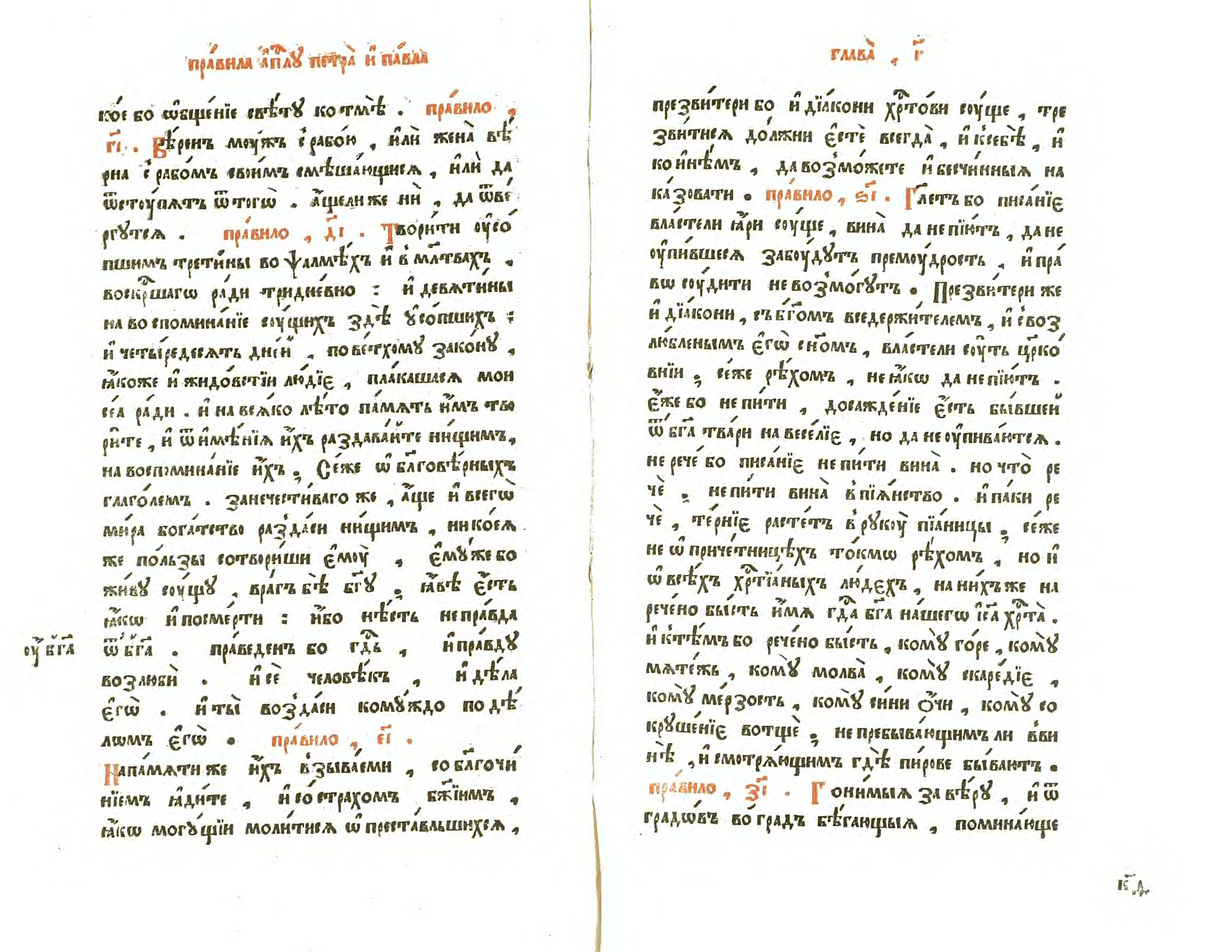 пра́вила а҆пⷭ҇лꙋ петра̀ и҆ па́вла
ко́е бо ѡ҆бще́нїе свѣ́тꙋ ко тмѣ̀ . пра́вило ,
г҃і . Вѣ́ренъ моу́жъ с̾ рабо́ю , и҆лѝ жена̀ вѣ́
рна с̾ рабо́мъ свои́мъ смѣша́ющися , и҆лѝ да
ѿстоу́пятъ ѿ того̀ . а҆́ще ли же нѝ , да ѿве́
ргутся . пра́вило , д҃і . Твори́ти оу҆со́
пшимъ трети́ны во ѱалмѣ́хъ и҆ в̾ мл҃твахъ ,
воскрⷭ҇шагѡ ра́ди тридне́вно : и҆ девяти́ны
на воспомина́нїе соу́щихъ здѣ̀ ᲂу҆со́пшихъ :
и҆ четы́редесять дні́й , по ве́тхомꙋ зако́нꙋ ,
ꙗ҆́коже и҆ жидо́встїи лю́дїє , пла́кашася мои
се́а ра́ди . и҆ на вся́ко лѣ́то па́мять и҆̀мъ тво
ри́те , и҆ ѿ и҆мѣ́нїя и҆́хъ раздава́йте ни́щимъ ,
на воспомина́нїе и҆́хъ ; Се́же ѡ҆ бл҃говѣ́рныхъ
глаго́лемъ . за нечести́ваго же , а҆́ще и҆ всегѡ̀
ми́ра бога́тство разда́си ни́щимъ , ни коея̀
же по́льзы сотвори́ши є҆моу̀ , є҆мꙋ́же бо
жи́вꙋ соу́щꙋ , вра́гъ бѣ̀ бг҃ꙋ ; ꙗ҆́вѣ є҆́сть
ꙗ҆́кѡ и҆ по сме́рти : и҆́бо нѣ́сть непра́вда
оу҆ бг҃а
ѿ бг҃а . пра́веденъ бо гдⷭ҇ь , и҆ пра́вдꙋ
возлюбѝ . и҆ сѐ человѣ́къ , и҆ дѣ́ла
є҆гѡ̀ . и҆ ты̀ возда́си комꙋ́ждо по дѣ́
лѡмъ є҆гѡ̀ . пра́вило , є҃і .
На па́мяти же и҆́хъ в̾зыва́еми , со бл҃гочи́
нїемъ ꙗ҆ди́те , и҆ со стра́хомъ бж҃їимъ ,
ꙗ҆́кѡ могꙋ́щїи моли́тися ѡ҆ преста́вльшихся ,
глава̀ , г҃
презви́тери бо и҆ дїа́кони хрⷭ҇то́ви соу́ще , тре
звитися до́лжни є҆стѐ всегда̀ , и҆ к̾ себѣ̀ , и҆
ко и҆нѣ́мъ , да возмо́жете и҆ бесчи́нныя на
ка́зовати . пра́вило , ѕ҃і . Гл҃етъ бо писа́нїє
вла́стели ꙗ҆́ри соу́ще , вина̀ да не пїю́тъ , да не
оу҆пи́вшеся забоу́дутъ премоу́дрость , и҆ пра́
вѡ соу́дити не возмо́гутъ . Презви́тери же
и҆ дїа́кони , съ бг҃омъ вседержи́телемъ , и҆ с̾ воз
лю́бленымъ є҆гѡ̀ сн҃омъ , вла́стели соу́ть црⷦ҇о́
внїи ; се́же рѣ́хомъ , не ꙗ҆́кѡ да не пїю́тъ .
є҆́же бо не пи́ти , досажде́нїе є҆́сть бы́вшей
ѿ бг҃а тва́ри на весе́лїє , но да не оу҆пива́ются .
не речѐ бо писа́нїє не пи́ти вина̀ . но что̀ ре
чѐ ; не пи́ти вина̀ в̾ пїя́нство . и҆ па́ки ре
чѐ , те́рнїє расте́тъ в̾ рукоу̀ пїа́ницы ; се́же
не ѡ҆ приче́тницѣхъ то́кмѡ рѣ́хомъ , но и҆
ѡ҆ всѣ́хъ хрⷭ҇тїа́ныхъ лю́дєхъ , на ни́хъ же на
рече́но бы́сть и҆́мя гдⷭ҇а бг҃а на́шегѡ і҆с҃а хрⷭ҇та̀ .
и҆ к̾ тѣ́мъ бо рече́но бы́сть , комꙋ̀ го́ре , комꙋ̀
мяте́жь , комꙋ̀ молва̀ , комꙋ̀ скаре́дїє ,
комꙋ̀ ме́рзость , комꙋ̀ си́ни ѻ҆́чи , комꙋ̀ со
крꙋше́нїє вотщѐ ; не пребыва́ющимъ ли в̾ ви
нѣ̀ , и҆ смотря́ющимъ гдѣ̀ пи́рове быва́ютъ .
пра́вило , з҃і . Гони́мыя за вѣ́рꙋ , и҆ ѿ
градѡ́въ во гра́дъ бѣ́гающыя , помина́юще
к҃д